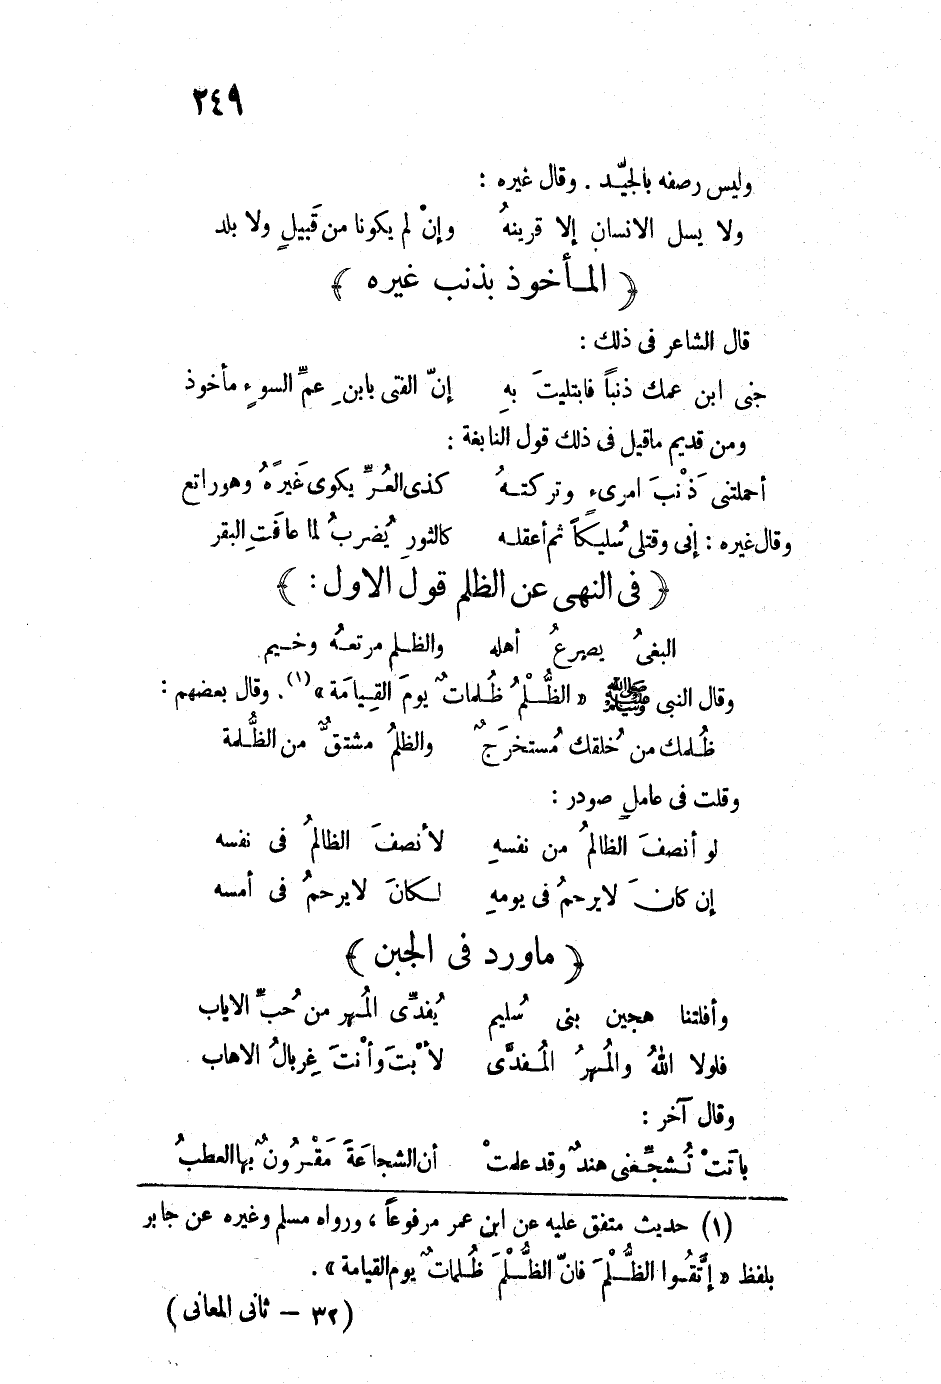 ٢٤٩
وليس رصفه بالجيّـد . وقال غيره :
ولا يسل الانسان إلا قرينهُ وإنْ لم يكونا من قَبيلٍ ولا بلد
﴿ المـأخوذ بذنب غيره ﴾
قال الشاعر فى ذلك :
جنى ابن عمك ذنباً فابتليتَ بهِ إنّ الفتى بابنِ عمِّ السوءِ مأخوذ
ومن قديم ماقيل فى ذلك قول النابغة :
أحملتنى ذَنْبَ امرىءٍ وتركتـهُ كذى العُـرِّ يكوى غَيرَهُ وهو راتع
وقال غيره : إنى وقتلى سُليـكاً ثم أعقلـه كالثورِ يُضربُ لما عافَتِ البقر
﴿ فى النهى عن الظلم قول الاول : ﴾
البغىُ يصرعُ أهله والظـلم مرتعـهُ وخـيم
وقال النبى ﷺ « الظُّـلْمُ ظُـلماتٌ يومَ القـيامَة »(١). وقال بعضهم :
ظُـلمك من خُلقك مُستخرَجٌ والظلمُ مشتقٌّ من الظُّلمة
وقلت فى عاملٍ صودر :
لو أنصفَ الظالمُ من نفسهِ لأنصفَ الظالمُ فى نفسه
إن كانَ لايرحمُ فى يومهِ لـكانَ لايرحمُ فى أمسه
﴿ ماورد فى الجبن ﴾
وأفلتنا هجين بنى سُليم يُفدِّى المُـهر من حُبِّ الاياب
فلولا اللهُ والمُـهرُ المُـفدَّى لأبْتَ وأنْتَ غِربالُ الاهاب
وقال آخر :
باتَتْ تُـشجِّـعنى هندٌ وقد علمتْ أن الشجاعَةَ مَقْـرُونٌ بها العطبُ
(١) حديث متفق عليه عن ابن عمر مرفوعاً ، ورواه مسلم وغيره عن جابر
بلفظ « إتَّقُـوا الظُّـلْمَ فانّ الظُّـلْمَ ظُـلماتٌ يوم القيامة » .
(٣٢ – ثانى المعانى)